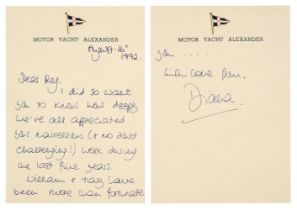 MOTOR YACHT ALEXANDER
August 16th
1992.
Dear Reg,
I did so want
you to know how deeply
we've all appreciated
your marvellous (& no doubt
challenging!) work during
the last five years.
William & Harry have
been more than fortunate
MOTOR YACHT ALEXANDER
you ....
with love from,
Diana.